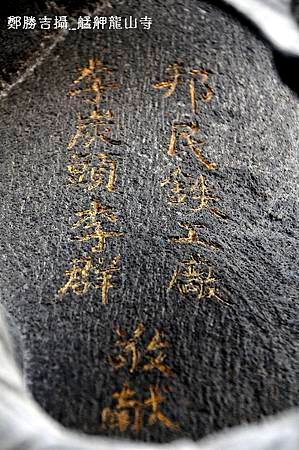 鄭勝吉攝_艋舺龍山寺
邦民鉄工廠
李炭頭李群
敬献